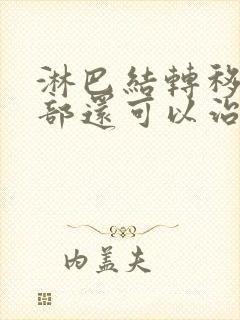 淋巴結轉移
部還可以治
内蓋夫